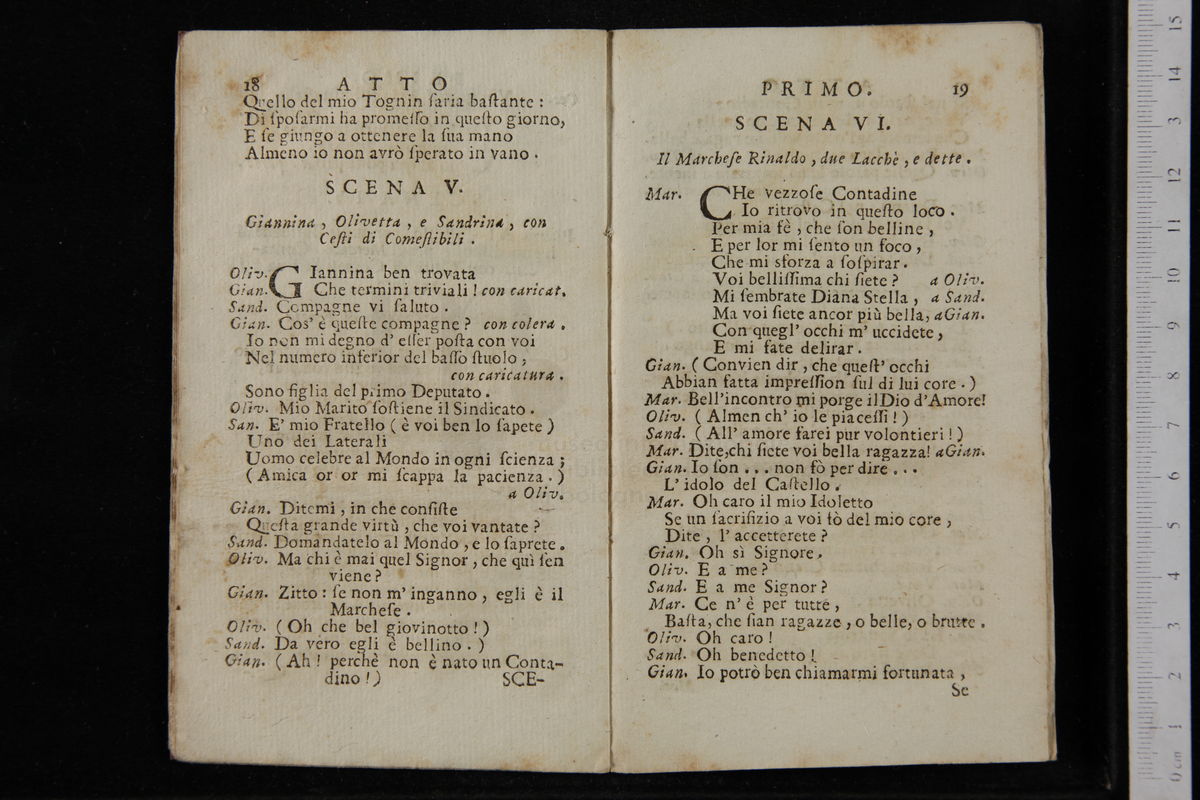 18 ATTO
Quello del mio Tognin ſaria baſtante :
Di ſpoſarmi ha promeſſo in queſto giorno,
E ſe giungo a ottenere la ſua mano
Almeno io non avrò ſperato in vano .
SCENA V.
Giannina , Olivetta , e Sandrina , con
Ceſti di Comeſtibili .
Oliv. GIannina ben trovata
Gian. Che termini triviali ! con caricat.
Sand. Compagne vi ſaluto .
Gian. Cos' è queſte compagne ? con colera .
Io non mi degno d' eſſer poſta con voi
Nel numero inferior del baſſo ſtuolo ;
con caricatura .
Sono figlia del primo Deputato .
Oliv. Mio Marito ſoſtiene il Sindicato .
San. E' mio Fratello ( è voi ben lo ſapete )
Uno dei Laterali
Uomo celebre al Mondo in ogni ſcienza ;
( Amica or or mi ſcappa la pacienza . )
a Oliv.
Gian. Ditemi , in che conſiſte
Queſta grande virtù , che voi vantate ?
Sand. Domandatelo al Mondo , e lo ſaprete .
Oliv. Ma chi è mai quel Signor , che quì ſen
viene ?
Gian. Zitto : ſe non m' inganno , egli è il
Marcheſe .
Oliv. ( Oh che bel giovinotto ! )
Sand. Da vero egli è bellino . )
Gian. ( Ah ! perchè non è nato un Conta-
dino ! ) SCE-
PRIMO. 19
SCENA VI.
Il Marcheſe Rinaldo , due Lacchè , e dette .
Mar. CHe vezzoſe Contadine
Io ritrovo in queſto loco .
Per mia fè , che ſon belline ,
E per lor mi ſento un foco ,
Che mi sforza a ſoſpirar .
Voi belliſſima chi ſiete ? a Oliv.
Mi ſembrate Diana Stella , a Sand.
Ma voi ſiete ancor più bella, a Gian.
Con quegl' occhi m' uccidete ,
E mi fate delirar .
Gian. ( Convien dir , che queſt' occhi
Abbian fatta impreſſion ſul di lui core . )
Mar. Bell'incontro mi porge il Dio d'Amore!
Oliv. ( Almen ch' io le piaceſſi ! )
Sand. ( All' amore farei pur volontieri ! )
Mar. Dite, chi ſiete voi bella ragazza! a Gian.
Gian. Io ſon . . . non fò per dire . . .
L' idolo del Caſtello .
Mar. Oh caro il mio Idoletto
Se un ſacrifizio a voi fò del mio core ,
Dite , l' accetterete ?
Gian. Oh sì Signore .
Oliv. E a me ?
Sand. E a me Signor ?
Mar. Ce n' è per tutte ,
Baſta, che ſian ragazze , o belle, o brutte .
Oliv. Oh caro !
Sand. Oh benedetto !
Gian. Io potrò ben chiamarmi fortunata ,
Se
0 cm 1 2 3 4 5 6 7 8 9 10 11 12 3 14 15